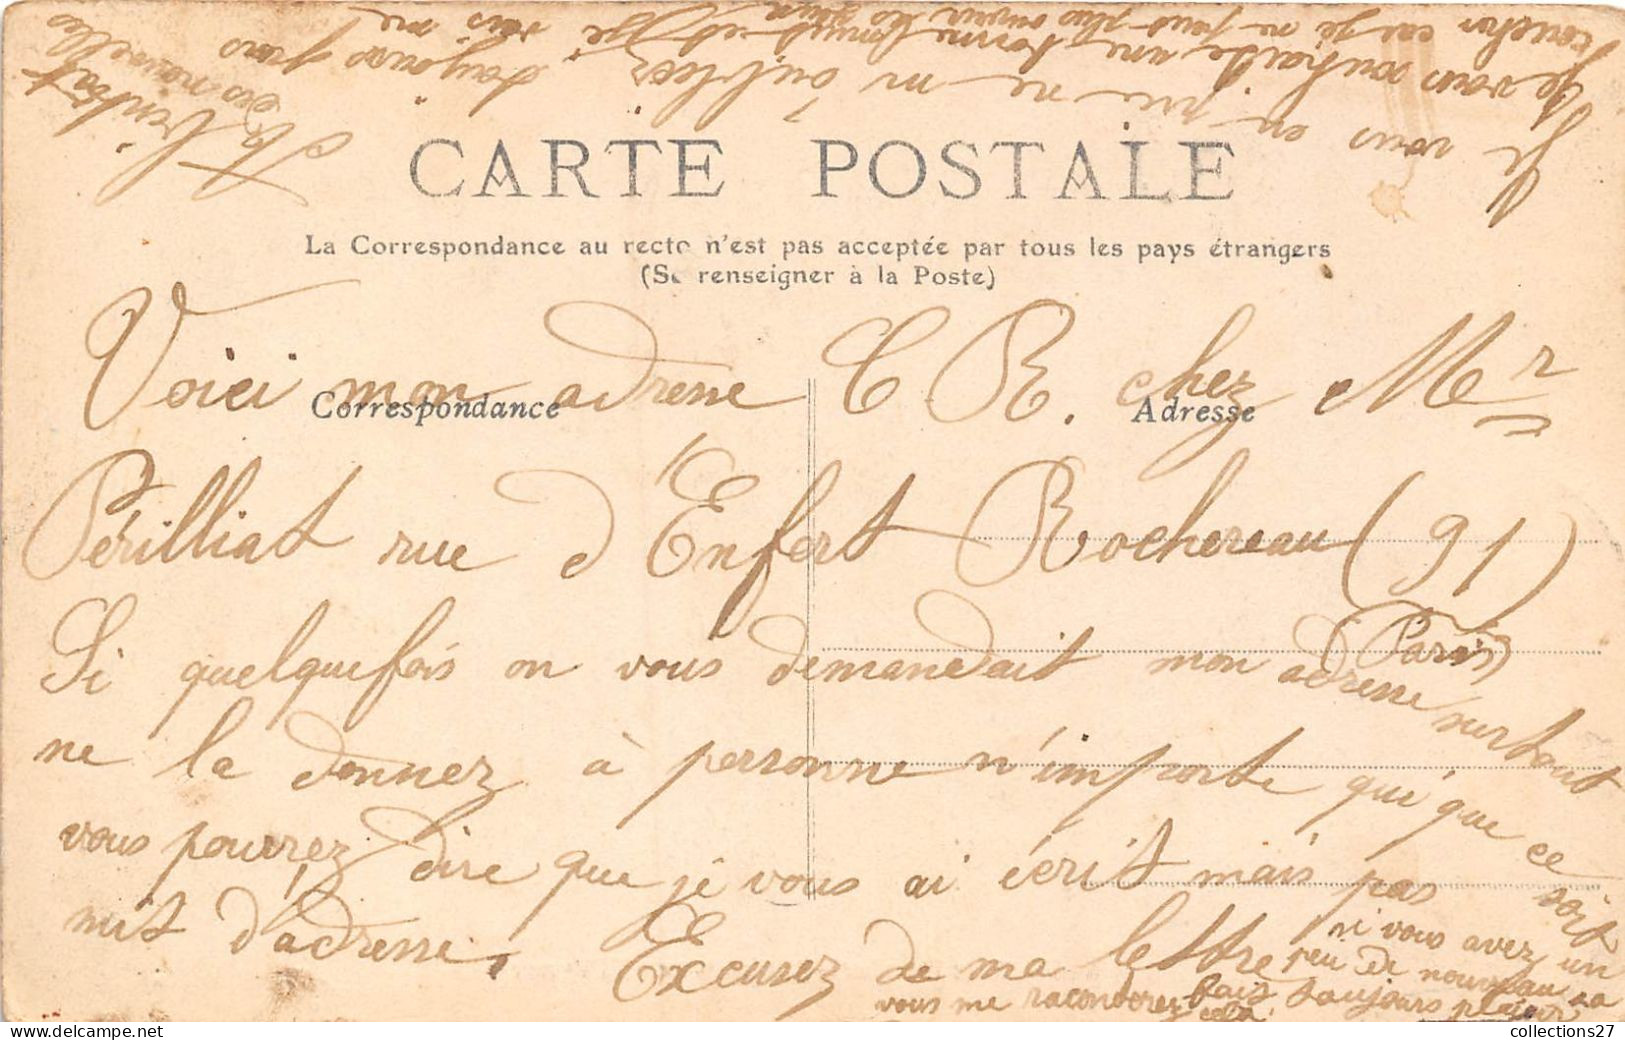 CARTE POSTALE
La Correspondance au recto n'est pas acceptée par tous les pays étrangers
(Se renseigner à la Poste)
Correspondance
Adresse
Voici mon adresse C R. chez Mr
Périlliat rue d'Enfert Rochereau (91)
(Paris)
Si quelquefois on vous demandait mon adresse surtout
ne la donnez à personne n'importe qui que ce soit
vous pourrez dire que je vous ai écrit mais pas
mit d'adresse. Excusez de ma lettre
si vous avez un
peu de nouveau
vous me raconterez cela
fais toujours plaisir
Je vous en prie ne m'oubliez toujours pas
Je vous souhaite une bonne
collections27